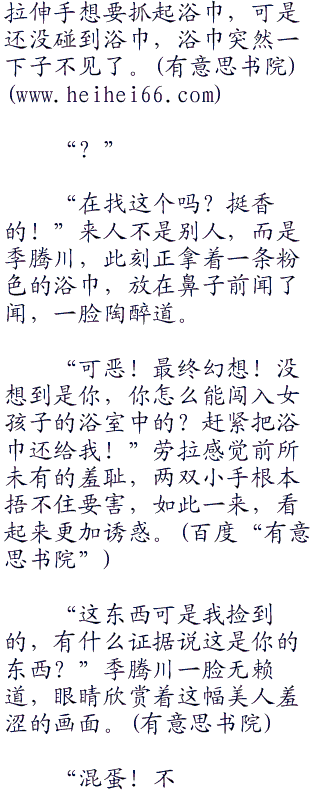 拉伸手想要抓起浴巾，可是
还没碰到浴巾，浴巾突然一
下子不见了。(有意思书院)
(www.heihei66.com)
“？”
“在找这个吗？挺香
的！”来人不是别人，而是
季腾川，此刻正拿着一条粉
色的浴巾，放在鼻子前闻了
闻，一脸陶醉道。
“可恶！最终幻想！没
想到是你，你怎么能闯入女
孩子的浴室中的？赶紧把浴
巾还给我！”劳拉感觉前所
未有的羞耻，两双小手根本
捂不住要害，如此一来，看
起来更加诱惑。(百度“有意
思书院”)
“这东西可是我捡到
的，有什么证据说这是你的
东西？”季腾川一脸无赖
道，眼睛欣赏着这幅美人羞
涩的画面。(有意思书院)
“混蛋！不